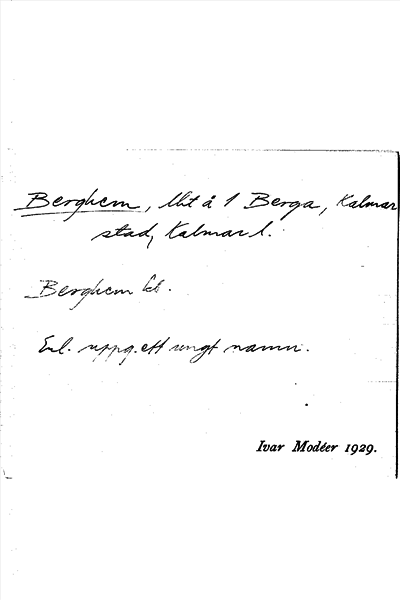 Berghem, lht å 1 Berga, Kalmar
stad, Kalmar l.
Berghem
Enl. uppg. ett ungt namn.
Ivar Modéer 1929.